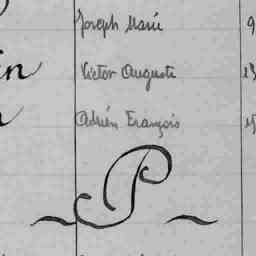 Joseph Marie 9
in Victor Auguste 13
Adrien François
P